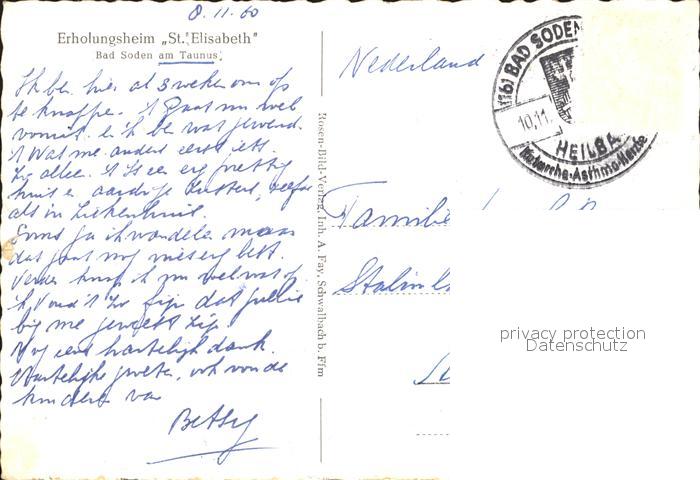 8.11.60
Erholungsheim „St. Elisabeth"
Bad Soden am Taunus
Ik ben hier al 3 weken om op
te knappen. 't Gaat nu wel
vooruit. Ik ben wat gewend.
't Was me anders eerst iets.
Zo alleen. 't Is een erg prettig
huis en aardige zusters, net
als in ziekenhuis.
Soms ga ik wandelen maar
dat gaat nog niet erg best.
Verder knap ik nu wel wat op.
Ik vond 't zo fijn dat jullie
bij me geweest zijn.
Nog eens hartelijk dank.
Hartelijke groeten, ook van de
kinders van
Betsy
Rosen-Bild-Verlag, Inh. A. Fay, Schwalbach b. Ffm
Nederland
(16) BAD SODEN
10.11.
HEILBA
Katarrhe-Asthma-Herzle
Familie
Stalin
privacy protection
Datenschutz